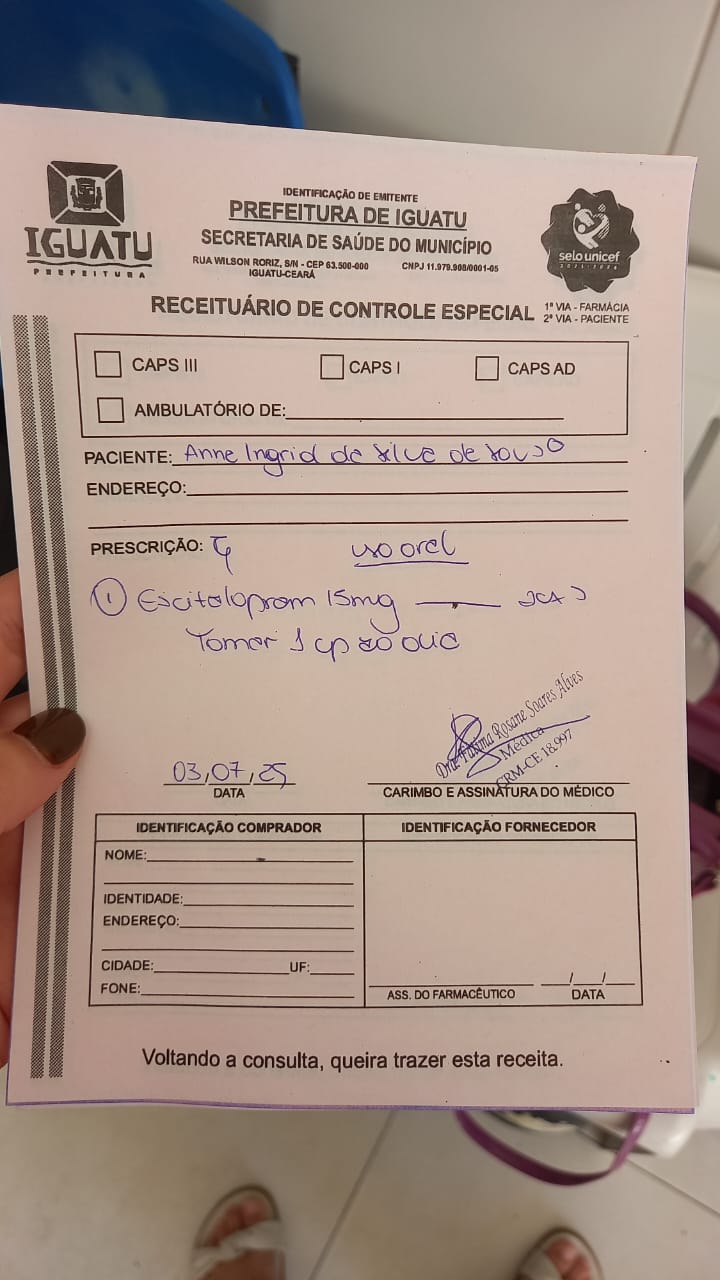 IGUATU
PREFEITURA
IDENTIFICAÇÃO DE EMITENTE
PREFEITURA DE IGUATU
SECRETARIA DE SAÚDE DO MUNICÍPIO
RUA WILSON RORIZ, S/N - CEP 63.500-000 CNPJ 11.979.908/0001-05
IGUATU-CEARÁ
selo unicef
RECEITUÁRIO DE CONTROLE ESPECIAL
1ª VIA - FARMÁCIA
2ª VIA - PACIENTE
CAPS III CAPS I CAPS AD
AMBULATÓRIO DE:
PACIENTE: Anne Ingrid da Silva de Souso
ENDEREÇO:
PRESCRIÇÃO: uso oral
① Escitalopram 15mg
Tomar 1 cp ao dia
Dra. Fátima Rosane Soares Alves
Médica
CRM-CE 18.997
03,07,25
DATA
CARIMBO E ASSINATURA DO MÉDICO
IDENTIFICAÇÃO COMPRADOR
NOME:
IDENTIDADE:
ENDEREÇO:
CIDADE: UF:
FONE:
IDENTIFICAÇÃO FORNECEDOR
/ /
ASS. DO FARMACÊUTICO DATA
Voltando a consulta, queira trazer esta receita.